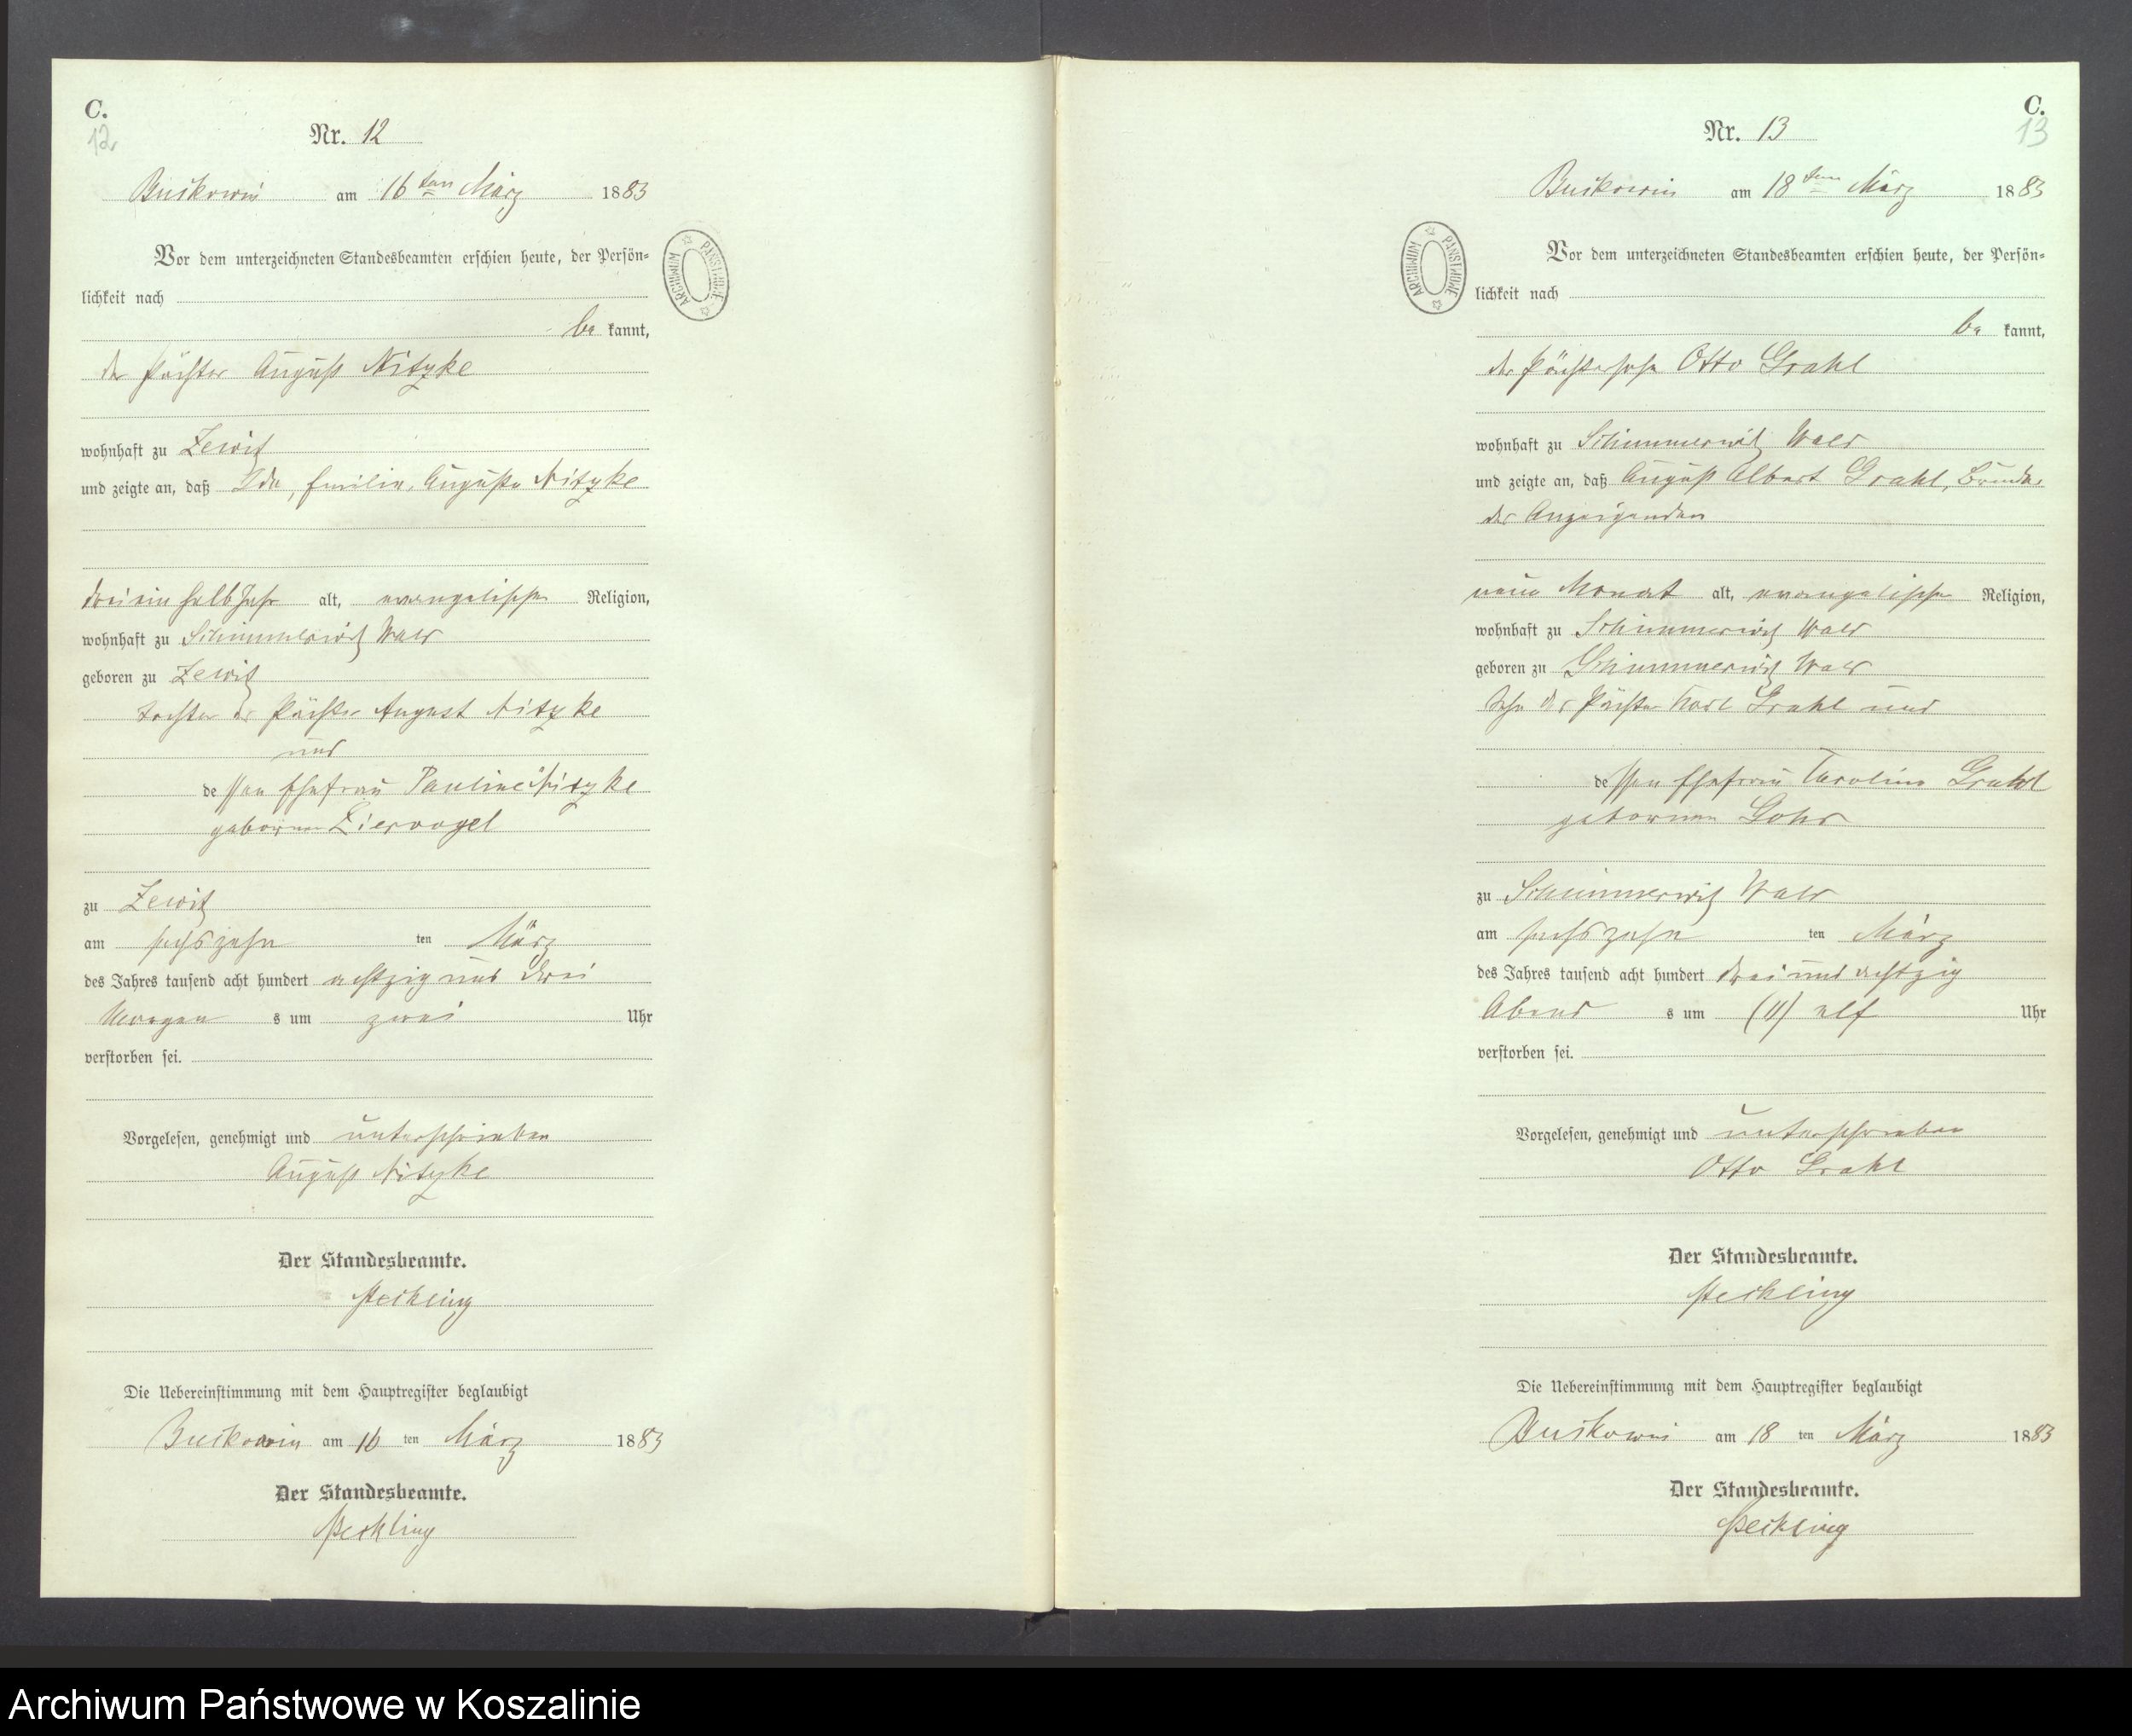 C.
12
Nr. 12
Buckowin am 16ten März 1883
Vor dem unterzeichneten Standesbeamten erschien heute, der Persön-
lichkeit nach
be kannt,
der Pächter August Nitzke
wohnhaft zu Zewitz
und zeigte an, daß Ida, Emilie, Auguste Nitzke
drei ein halb Jahr alt, evangelischer Religion,
wohnhaft zu Schimmerwitz Wald
geboren zu Zewitz
Tochter des Pächter August Nitzke
und
dessen Ehefrau Pauline Nitzke
geborenen Ziervogel
zu Zewitz
am sechszehn ten März
des Jahres tausend acht hundert achtzig und drei
Morgen s um zwei Uhr
verstorben sei.
Vorgelesen, genehmigt und unterschrieben
August Nitzke
Der Standesbeamte.
Die Uebereinstimmung mit dem Hauptregister beglaubigt
Buckowin am 16 ten März 1883
Der Standesbeamte.
ARCHIWUM PAŃSTWOWE
C.
13
Nr. 13
Buckowin am 18ten März 1883
Vor dem unterzeichneten Standesbeamten erschien heute, der Persön-
lichkeit nach
be kannt,
der Pächtersohn Otto Grahl
wohnhaft zu Schimmerwitz Wald
und zeigte an, daß August Albert Grahl, Bruder
des Anzeigenden
neun Monat alt, evangelischer Religion,
wohnhaft zu Schimmerwitz Wald
geboren zu Schimmerwitz Wald
Sohn des Pächter Karl Grahl und
dessen Ehefrau Caroline Grahl
geborenen Gohr
zu Schimmerwitz Wald
am sechszehn ten März
des Jahres tausend acht hundert drei und achtzig
Abend s um (11) elf Uhr
verstorben sei.
Vorgelesen, genehmigt und unterschrieben
Otto Grahl
Der Standesbeamte.
Die Uebereinstimmung mit dem Hauptregister beglaubigt
Buckowin am 18 ten März 1883
Der Standesbeamte.
ARCHIWUM PAŃSTWOWE
Archiwum Państwowe w Koszalinie